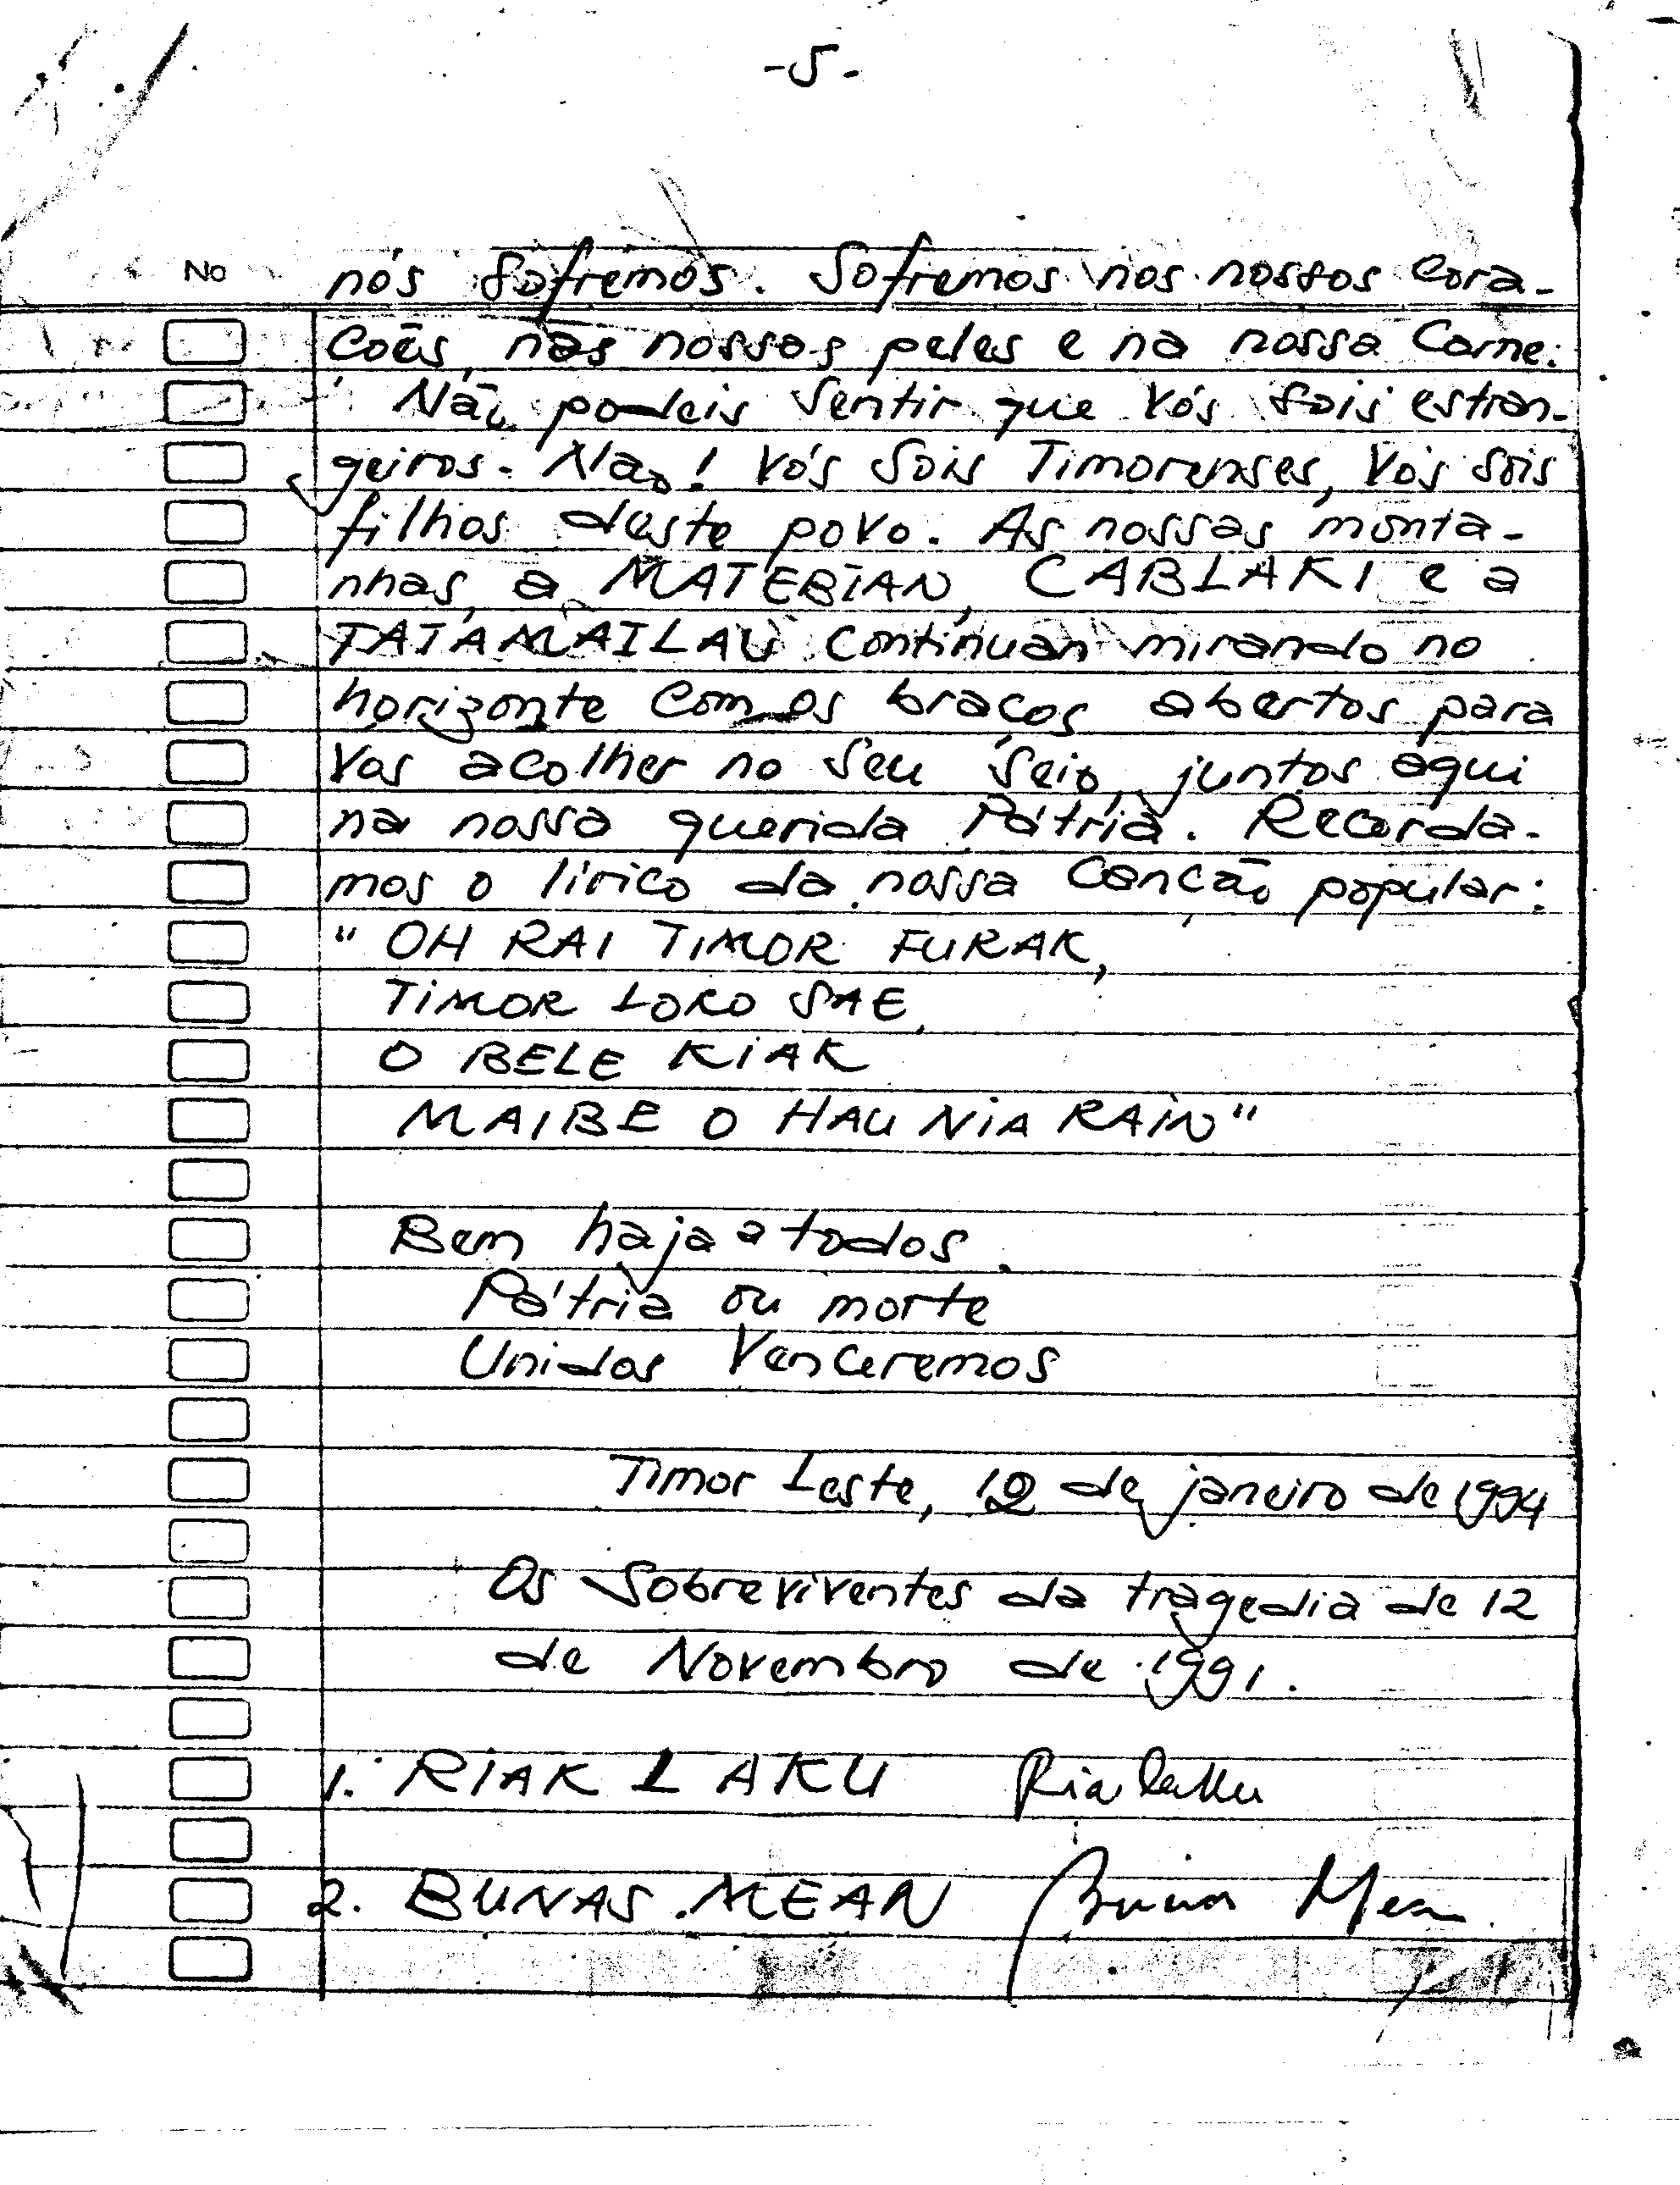 -5-
No
nós sofremos. Sofremos nos nossos cora-
ções, nas nossas peles e na nossa carne.
Não podeis sentir que vós sois estran-
geiros. Não! Vós sois Timorenses, vós sois
filhos deste povo. As nossas monta-
nhas, a MATEBIAN, CABLAKI e a
TATAMAILAU continuan mirando no
horizonte com os braços abertos para
vos acolher no seu seio, juntos aqui
na nossa querida Pátria. Recorda-
mos o lirico da nossa canção popular:
" OH RAI TIMOR FURAK,
TIMOR LORO SAE,
O BELE KIAK
MAIBE O HAU NIA RAIN"
Bem haja a todos.
Pátria ou morte
Unidos Venceremos
Timor Leste, 12 de janeiro de 1994
Os Sobreviventes da tragedia de 12
de Novembro de 1991.
1. RIAK LAKU Riak Laku
2. BUNAS MEAN Bunas Mean